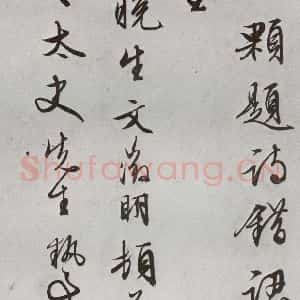 顆題詩錯認
晚生文嵩明頓首
太史先生執事
Shufawang.CN